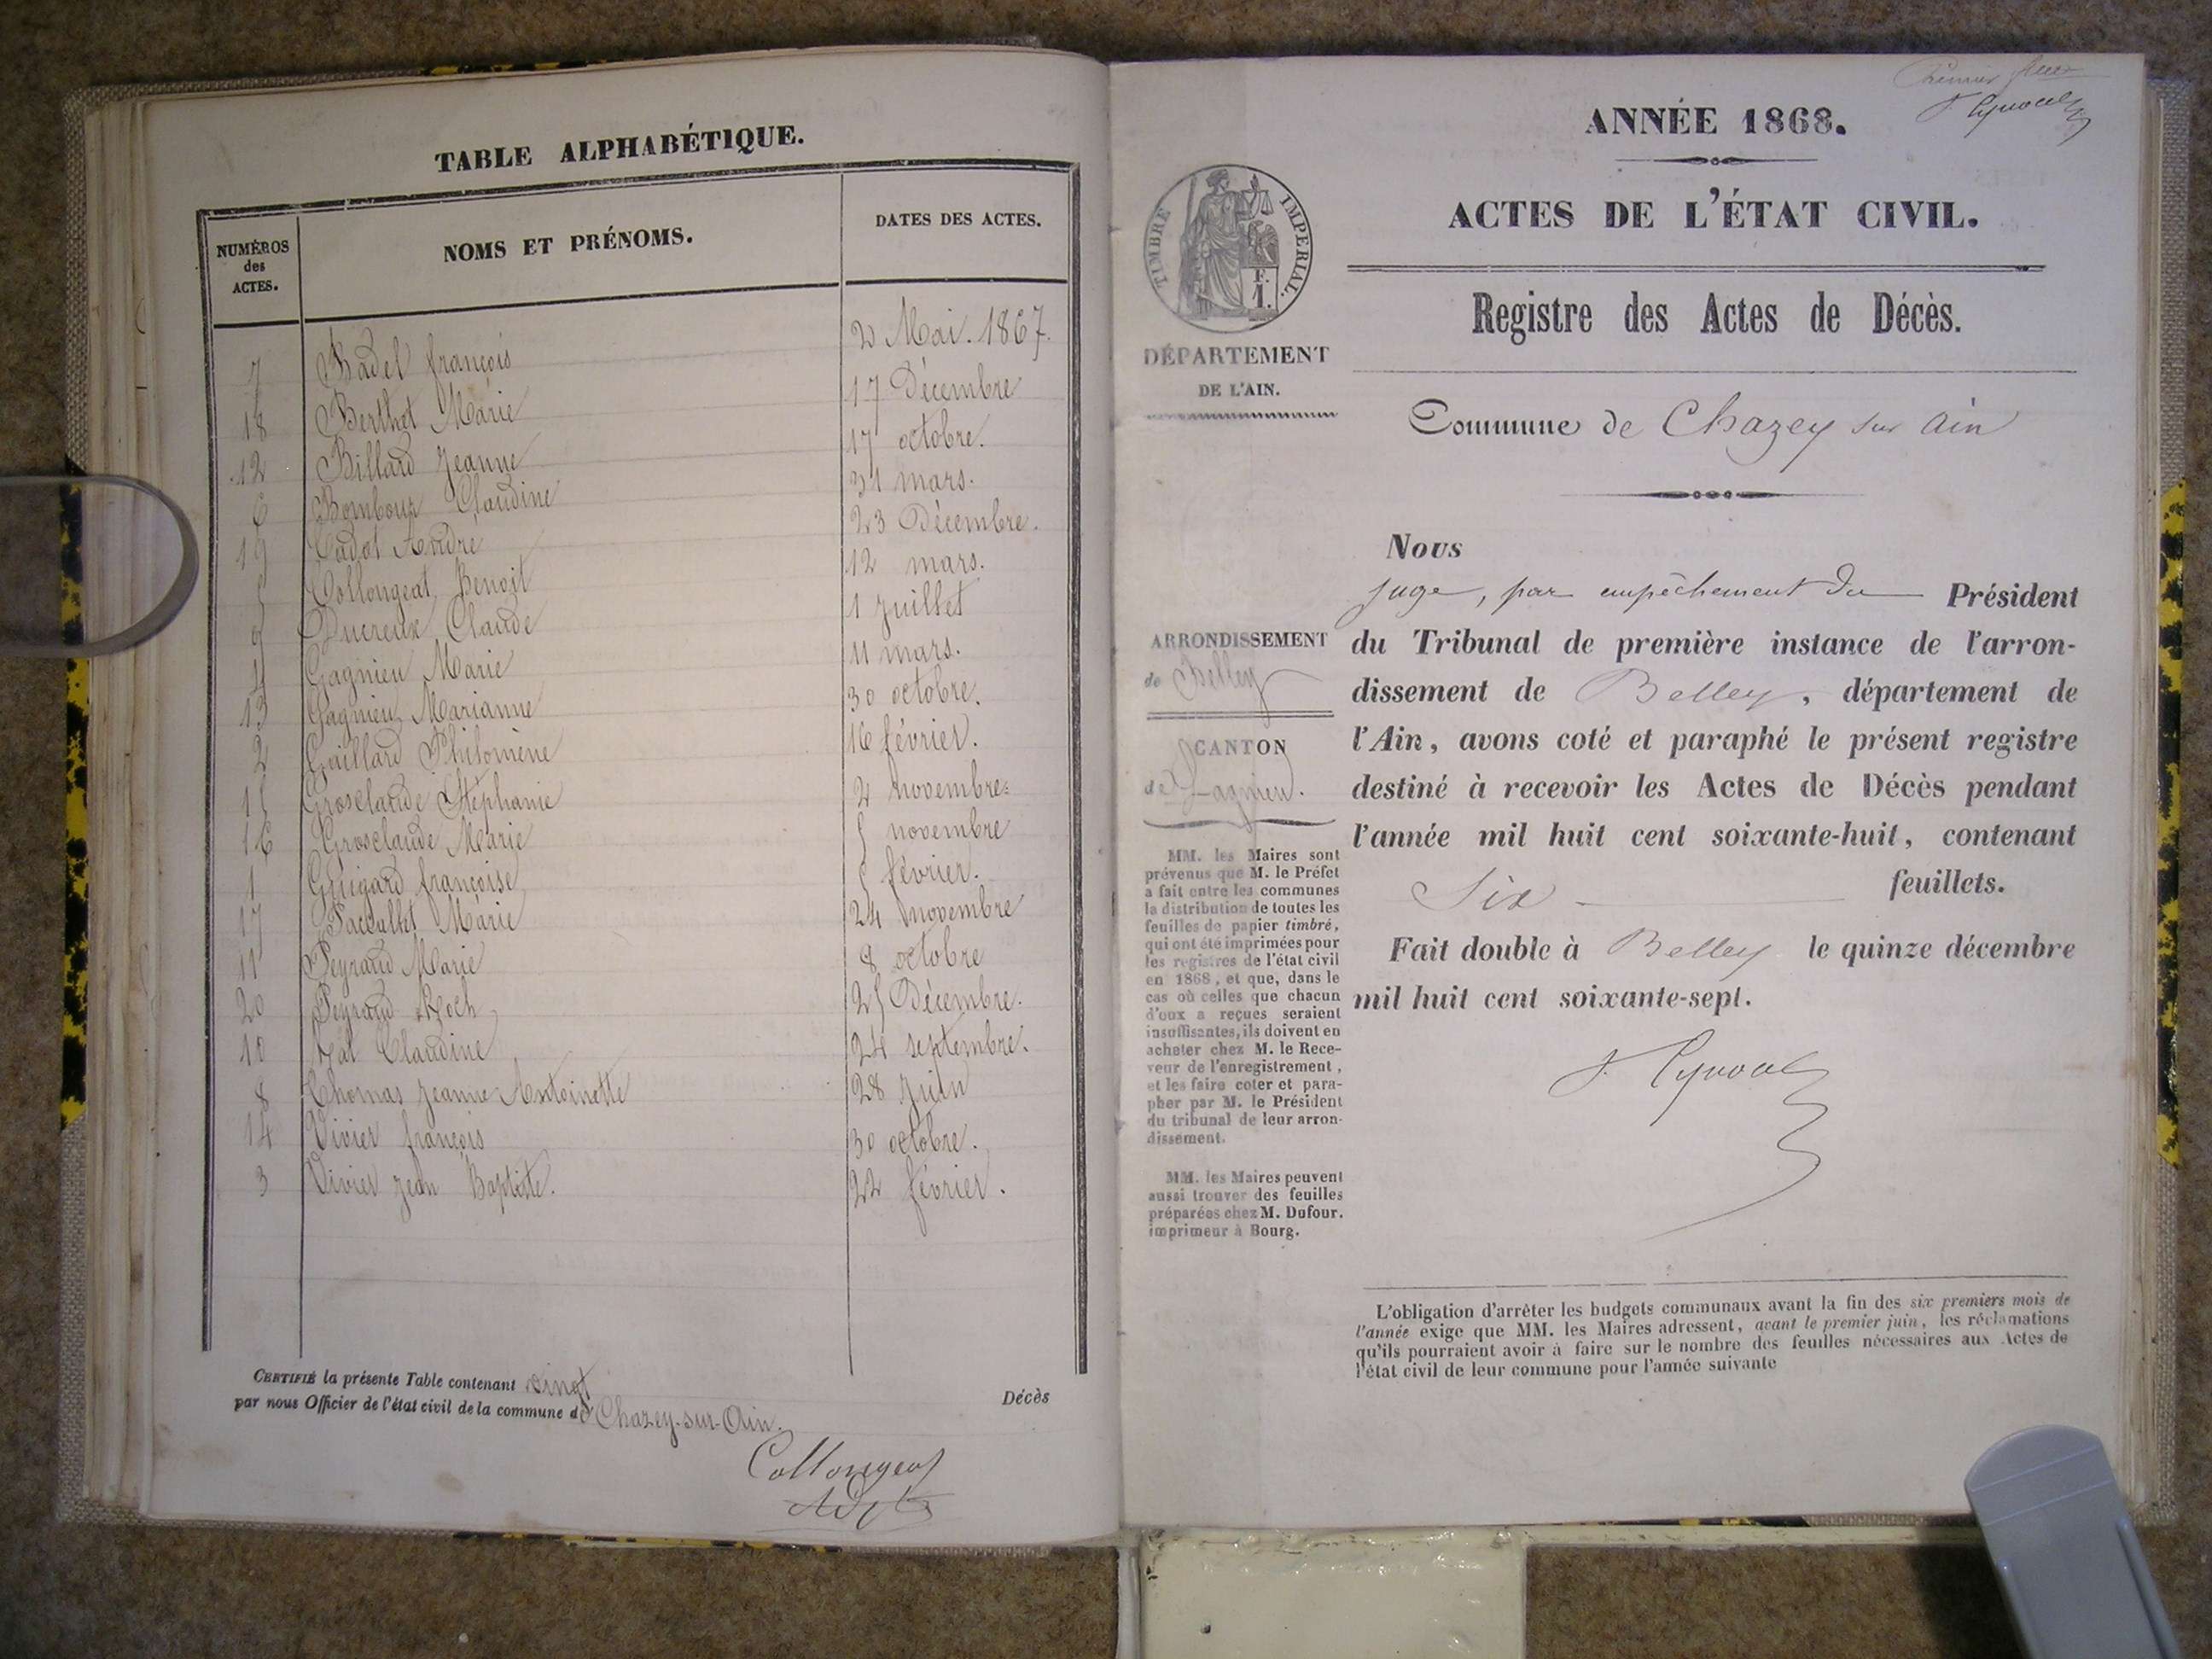 TABLE ALPHABÉTIQUE.
NUMÉROS des ACTES. NOMS ET PRÉNOMS. DATES DES ACTES.
7 Badel françois 2 Mai. 1867.
18 Berthet Marie 17 Décembre
12 Billard Jeanne 17 octobre.
6 Bombour Claudine 31 mars.
19 Cadot André 23 Décembre.
5 Collongeat Benoit 12 mars.
9 Ducreux Claude 1 Juillet
4 Gagnieu Marie 11 mars.
13 Gagnieu Marianne 30 octobre.
2 Gaillard Philomène 16 février.
15 Grosclaude Stéphanie 4 novembre
16 Grosclaude Marie 5 novembre
1 Guigard françoise 5 février.
17 Paccallet Marie 24 novembre
11 Peyraud Marie 8 octobre
20 Peyraud Roch 25 Décembre.
10 Claudine 24 septembre.
8 Thomas Jeanne Antoinette 28 Juin
14 Vivier françois 30 octobre.
3 Vivier Jean Baptiste. 22 février.
CERTIFIÉ la présente Table contenant vingt Décès
par nous Officier de l'état civil de la commune de Chazey-sur-Ain.
Collongeat
Adjt
Premier
ANNÉE 1868.
ACTES DE L'ÉTAT CIVIL.
TIMBRE IMPERIAL.
F.
1.
Registre des Actes de Décès.
DÉPARTEMENT
DE L'AIN.
Commune de Chazey sur Ain
Nous
juge, par empêchement du Président
du Tribunal de première instance de l'arron-
dissement de Belley, département de
l'Ain, avons coté et paraphé le présent registre
destiné à recevoir les Actes de Décès pendant
l'année mil huit cent soixante-huit, contenant
Six feuillets.
Fait double à Belley le quinze décembre
mil huit cent soixante-sept.
ARRONDISSEMENT
de Belley
CANTON
de Lagnieu.
MM. les Maires sont
prévenus que M. le Préfet
a fait entre les communes
la distribution de toutes les
feuilles de papier timbré,
qui ont été imprimées pour
les registres de l'état civil
en 1868, et que, dans le
cas où celles que chacun
d'eux a reçues seraient
insuffisantes, ils doivent en
acheter chez M. le Rece-
veur de l'enregistrement,
et les faire coter et para-
pher par M. le Président
du tribunal de leur arron-
dissement.
MM. les Maires peuvent
aussi trouver des feuilles
préparées chez M. Dufour,
imprimeur à Bourg.
L'obligation d'arrêter les budgets communaux avant la fin des six premiers mois de
l'année exige que MM. les Maires adressent, avant le premier juin, les réclamations
qu'ils pourraient avoir à faire sur le nombre des feuilles nécessaires aux Actes de
l'état civil de leur commune pour l'année suivante